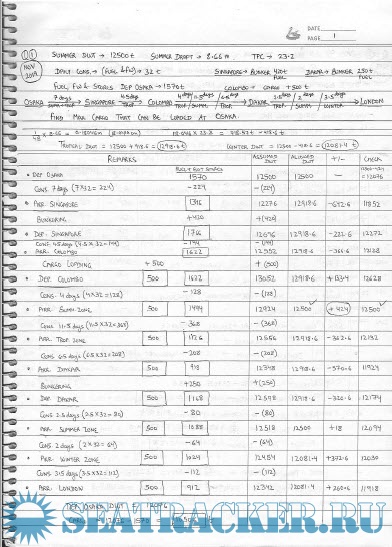 DATE
PAGE 1
Q1 SUMMER DWT → 12500 t SUMMER DRAFT → 8.66 m TPC → 23.2
NOV 2019
DAILY CONS. → (FUEL & FW) → 32 t SINGAPORE → BUNKER 420t DAKAR → BUNKER 250t FUEL
FUEL, FW & STORES DEP OSAKA → 1570t COLOMBO → CARGO +500 t
OSAKA 7 days SUMM. + TROP. SINGAPORE 4.5 days COLOMBO DAKAR LONDON
FIND MAX CARGO THAT CAN BE LOADED AT OSAKA.
TROPICAL DWT = 12500 + 418.6 = 12918.6t WINTER DWT = 12500 - 418.6 = 12081.4 t
REMARKS ASSUMED DWT ALLOWED DWT +/- CHECK
• DEP OSAKA 1570 12500 12500 - = 12076
CONS. 7 days (7X32 = 224) - 224 - (224)
• ARR. SINGAPORE 1346 12276 12918.6 -642.6 11852
BUNKERING +420 +(420)
• DEP. SINGAPORE 1766 12696 12918.6 -222.6 12272
CONS 4.5 days (4.5 X 32 = 144) - 144 - 144
• ARR. COLOMBO 1622 12552 12918.6 -366.6 12128
CARGO LOADING + 500 + (500)
• DEP. COLOMBO 500 1622 13052 12918.6 +133.4 12628
CONS. 4 days (4X32 = 128) - 128 - (128)
• ARR. SUMM. ZONE 500 1494 12924 12500 +424 12500
CONS. 11.5 days (11.5 X 32 = 368) - 368 - (368)
• ARR. TROP. ZONE 500 1126 12556 12918.6 -362.6 12132
CONS 6.5 days (6.5X32 = 208) - 208 - (208)
• ARR. DAKAR 500 918 12348 12918.6 -570.6 11924
BUNKERING +250 +(250)
• DEP DAKAR 500 1168 12598 12918.6 -320.6 12174
CONS 2.5 days (2.5 X 32 = 80) - 80 - (80)
• ARR SUMMER ZONE 500 1088 12518 12500 +18 12094
CONS 2 days (2X32 = 64) - 64 - (64)
• ARR. WINTER ZONE 500 1024 12454 12081.4 +372.6 12030
CONS 3.5 days (3.5X32 = 112) - 112 - (112)
• ARR. LONDON 500 912 12342 12081.4 +260.6 11918
DEP OSAKA DWT = 12076
SEATRACKER.RU